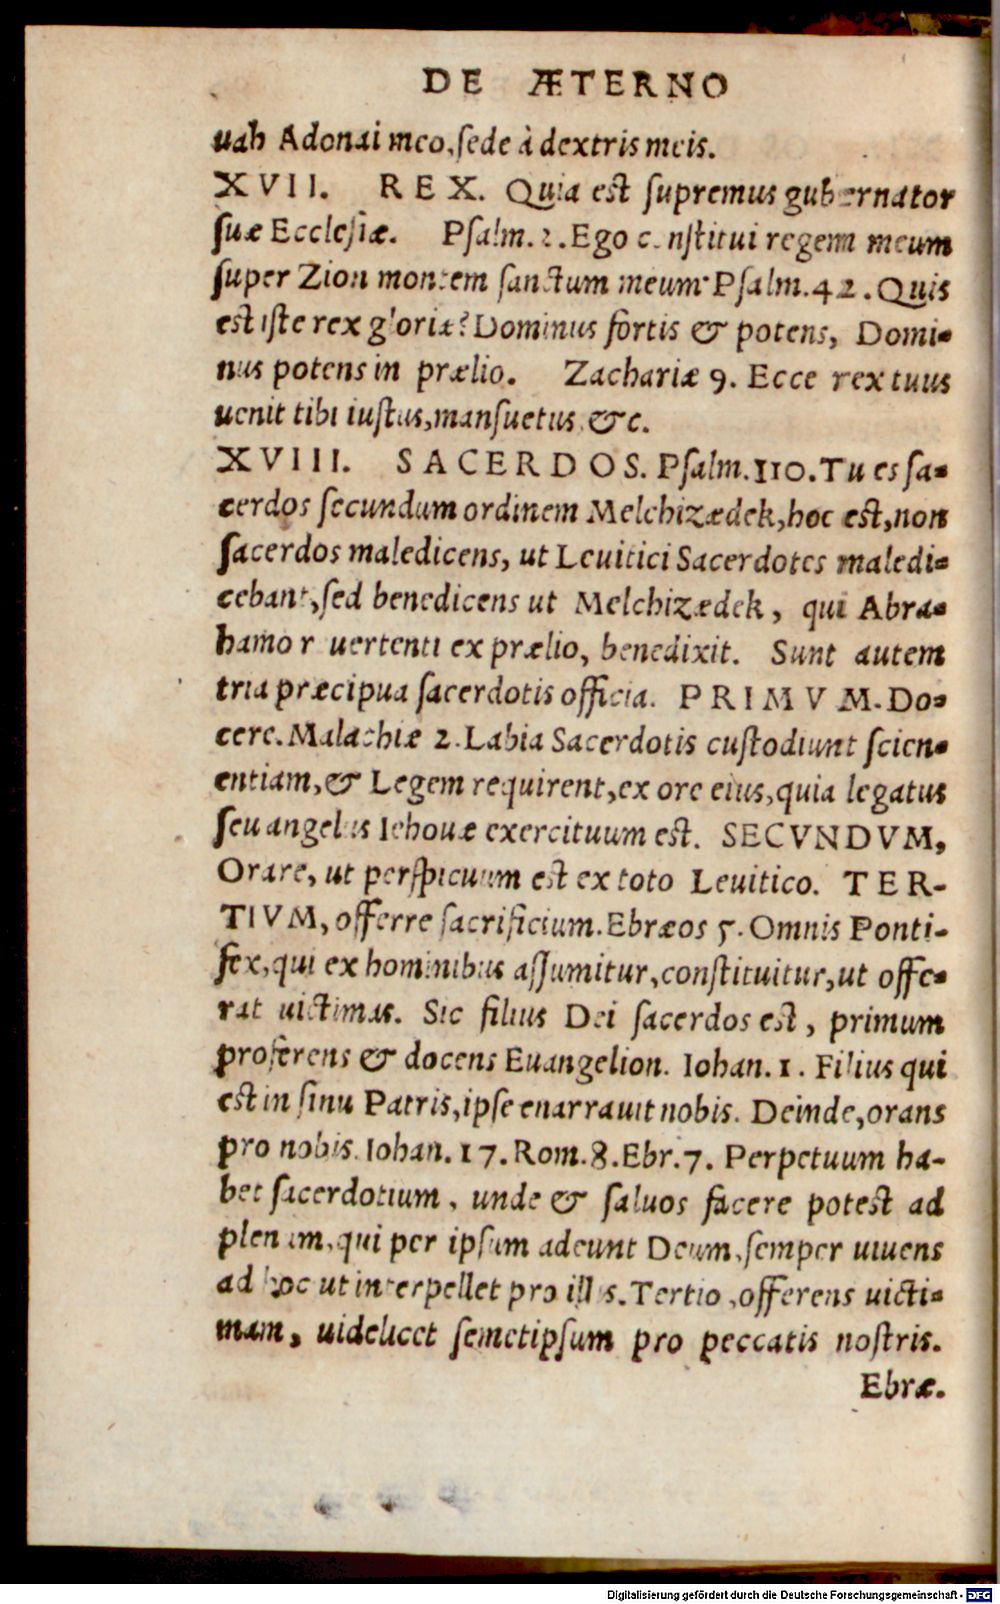 DE ÆTERNO
uah Adonai meo, sede à dextris meis.
XVII. REX. Quia est supremus gubernator
suæ Ecclesiæ. Psalm. 2. Ego constitui regem meum
super Zion montem sanctum meum. Psalm. 42. Quis
est iste rex gloriæ? Dominus fortis & potens, Domi-
nus potens in prælio. Zachariæ 9. Ecce rex tuus
uenit tibi iustus, mansuetus &c.
XVIII. SACERDOS. Psalm. 110. Tu es sa-
cerdos secundum ordinem Melchizædek, hoc est, non
sacerdos maledicens, ut Leuitici Sacerdotes maledi-
cebant, sed benedicens ut Melchizædek, qui Abra-
hamo reuertenti ex prælio, benedixit. Sunt autem
tria præcipua sacerdotis officia. PRIMVM. Do-
cere. Malachiæ 2. Labia Sacerdotis custodiunt scien-
entiam, & Legem requirent, ex ore eius, quia legatus
seu angelus Iehouæ exercituum est. SECVNDVM,
Orare, ut perspicuum est ex toto Leuitico. TER-
TIVM, offerre sacrificium. Ebræos 5. Omnis Ponti-
fex, qui ex hominibus assumitur, constituitur, ut offe-
rat uictimas. Sic filius Dei sacerdos est, primum
proferens & docens Euangelion. Iohan. 1. Filius qui
est in sinu Patris, ipse enarrauit nobis. Deinde, orans
pro nobis. Iohan. 17. Rom. 8. Ebr. 7. Perpetuum ha-
bet sacerdotium, unde & saluos facere potest ad
plenum, qui per ipsum adeunt Deum, semper uiuens
ad hoc ut interpellet pro illis. Tertio, offerens uicti-
mam, uidelicet semetipsum pro peccatis nostris.
Ebræ.
Digitalisierung gefördert durch die Deutsche Forschungsgemeinschaft - DFG